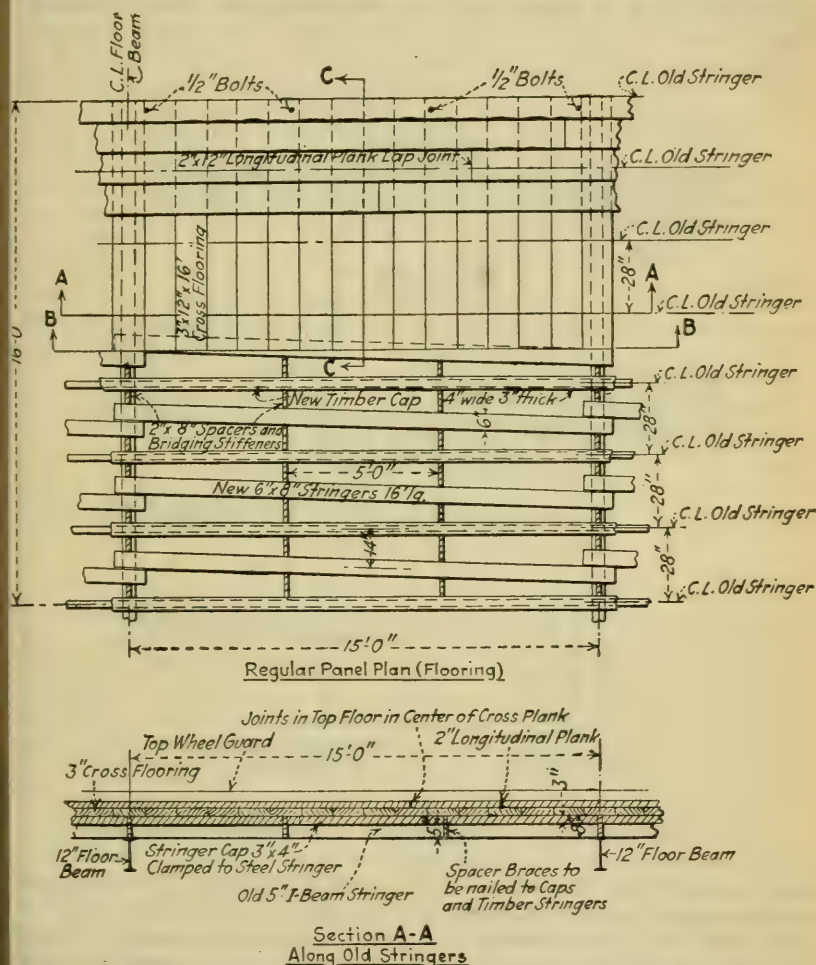 C.L. Floor
Beam
1/2" Bolts
C
1/2" Bolts
C.L. Old Stringer
2"x12" Longitudinal Plank Lap Joint
C.L. Old Stringer
C.L. Old Stringer
3"x12"x16'
Cross Flooring
28"
A
A
C.L. Old Stringer
B
B
16'-0"
C
C.L. Old Stringer
New Timber Cap
4" wide 3" thick
2"x 8" Spacers and
Bridging Stiffeners
6"
28"
C.L. Old Stringer
5'-0"
New 6"x8" Stringers 16' lg.
28"
C.L. Old Stringer
14"
28"
C.L. Old Stringer
15'-0"
Regular Panel Plan (Flooring)
Joints in Top Floor in Center of Cross Plank
Top Wheel Guard
2" Longitudinal Plank
15'-0"
3" Cross Flooring
3"
5"
8"
12" Floor
Beam
Stringer Cap 3"x4"
Clamped to Steel Stringer
Old 5" I-Beam Stringer
Spacer Braces to
be nailed to Caps
and Timber Stringers
12" Floor Beam
Section A-A
Along Old Stringers